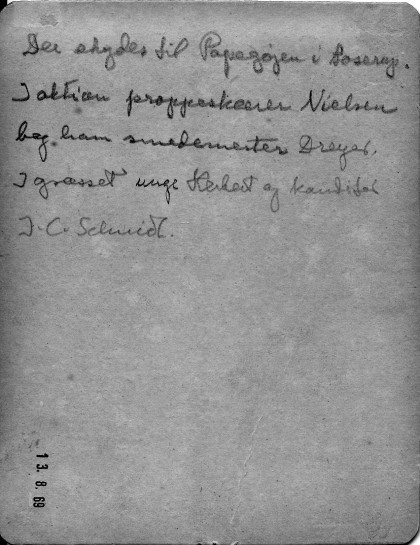 Der skydes til Papegøjen i Soserup.
I aktion proppeskærer Nielsen
bag ham smedemester Dreyer.
I græsset unge Herbert og konditor
J. C. Schmidt.
13. 8. 69